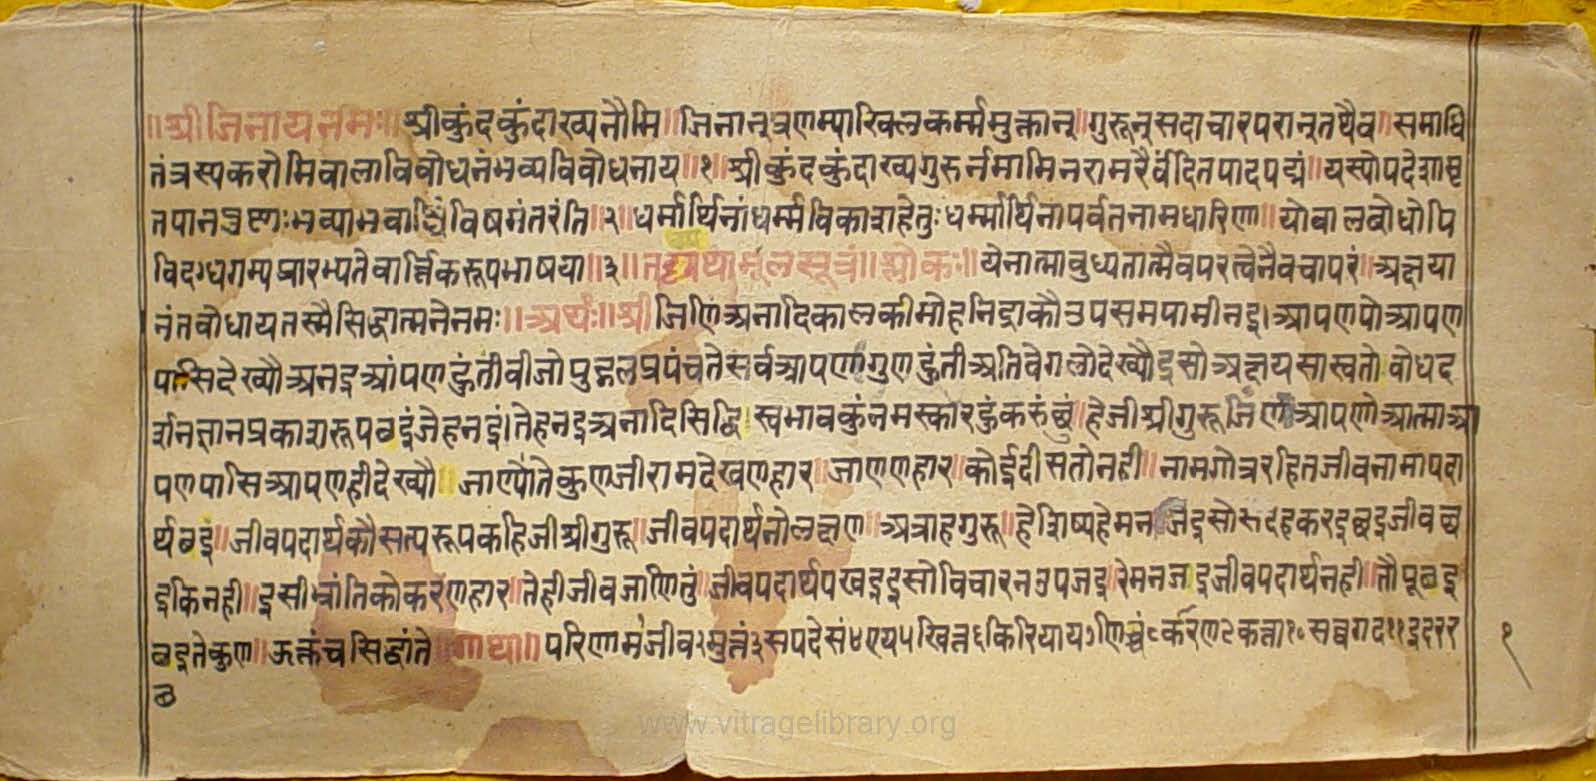 ॥श्रीजिनायनमः॥श्रीकुंदकुंदाख्यनौमि॥जिनान्प्रणम्याखिलकर्म्ममुक्तान्॥गुरून्सदाचारपरान्तथैव॥समाधि
तंत्रस्यकरोमिवालाविवोधनंभव्यविवोधनाय॥१॥श्रीकुंदकुंदाख्यगुरुर्नमामिनरामरैर्वंदितपादपद्मं॥यस्योपदेशामृ
तपान भव्याभवाब्धिंविषमंतरंति॥२॥धर्मार्थिनांधर्म्मविकाशहेतुःधर्म्मार्थिनापर्वतनामधारिणा॥योवालवोधोपि
विदग्धगम्यप्रारभ्यतेवार्त्तिकरूपभाषया॥३॥ मूलसूत्रं॥श्लोकः॥येनात्मावुध्यतात्मैवपरत्वेनैवचापरं॥अक्षया
नंतवोधायतस्मैसिद्धात्मनेनमः॥अर्थः॥श्रीजिणिअनादिकालकीमोहनिद्राकौउपसमपामीनइ।आपणपोआपण
पासिदेख्यौअनइआंपणहुंतीवीजोपुद्गलप्रपंचतेसर्वआपणागुणहुंतीअतिवेगलोदेख्यौइसोअक्षयसास्वतोवोधद
र्शनज्ञानप्रकाशरूपछइंजेहनइं।तेहनइअनादिसिद्धि।स्वभावकुंनमस्कारहुंकरुंछुं॥हेजीश्रीगुरूजिणआपणोआत्माआ
पणपासिआपणहीदेख्यौ॥जाण्यौतेकुणजीरामदेखणहार॥जाणणहार॥कोईदीसतोनही॥नामगोत्ररहितजीवनामापदा
र्थछइं॥जीवपदार्थकौसत्परूपकहिजीश्रीगुरू॥जीवपदार्थनोलक्षण॥अत्राहगुरू॥हेशिष्यहेमन जीव
इकिनही॥इसीभ्रांतिकोकरणहार॥तेहीजीवजाणितुं॥जीवपदार्थपखइइसोविचारनउपजइ॥रेमनजइजीवपदार्थनही॥तौपूछइ
छइतेकुण॥ऊक्तंचसिद्धांते॥गाथा॥परिणाम१जीव२मुत्तं३सपदेसं४एय५खित्त६किरियाय७णिच्चं८कारण९कत्ता१०सव्वगद११इदर१२
१
www.vitragelibrary.org